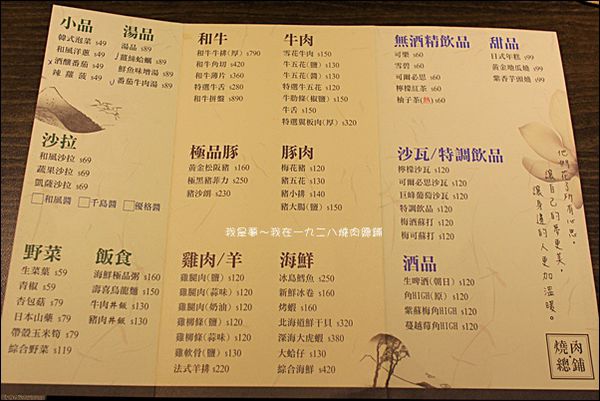 小品
韓式泡菜 $49
和風洋蔥 $49
酒釀番茄 $49
辣蘿蔔 $49
湯品
湯品 $89
薑絲蛤蠣 $89
鮮魚味增湯 $89
番茄牛肉湯 $89
沙拉
和風沙拉 $69
蔬果沙拉 $69
凱薩沙拉 $69
和風醬 千島醬 優格醬
野菜
生菜葉 $59
青椒 $59
杏包菇 $79
日本山藥 $79
帶殼玉米筍 $79
綜合野菜 $119
飯食
海鮮極品粥 $160
壽喜烏龍麵 $150
牛肉丼飯 $130
豬肉丼飯 $130
和牛
和牛牛排(厚) $790
和牛角切 $420
和牛薄片 $360
特選牛舌 $280
和牛拼盤 $890
極品豚
黃金松阪豬 $160
極黑豬菲力 $250
豬沙朗 $230
雞肉/羊
雞腿肉(鹽) $120
雞腿肉(蒜味) $120
雞腿肉(奶油) $120
雞柳條(鹽) $120
雞柳條(蒜味) $120
雞軟骨(鹽) $130
法式羊排 $220
牛肉
雪花牛肉 $150
牛五花(鹽) $130
牛五花(醬) $130
特選牛五花 $120
牛肋條(椒鹽) $150
牛舌 $150
特選翼板肉(厚) $320
豚肉
梅花豬 $120
豬五花 $130
豬小排 $140
豬大腸(鹽) $150
海鮮
冰島鱈魚 $250
新鮮冰卷 $160
烤蝦 $160
北海道鮮干貝 $320
深海大虎蝦 $380
大蛤仔 $130
綜合海鮮 $420
無酒精飲品
可樂 $60
雪碧 $60
可爾必思 $60
檸檬紅茶 $60
柚子茶(熱) $60
甜品
日式年糕 $99
黃金地瓜燒 $99
紫香芋頭燒 $99
沙瓦/特調飲品
檸檬沙瓦 $120
可爾必思沙瓦 $120
巨蜂葡萄沙瓦 $120
特調飲品 $120
梅酒蘇打 $120
梅可蘇打 $120
酒品
生啤酒(朝日) $120
角HIGH(原) $120
紫蘇梅角HIGH $120
蔓越莓角HIGH $120
他們花了所有心思,
讓自己的夢更美,
讓身邊的人更加溫暖。
燒肉
總鋪
我是夢~我在一九二八燒肉總鋪